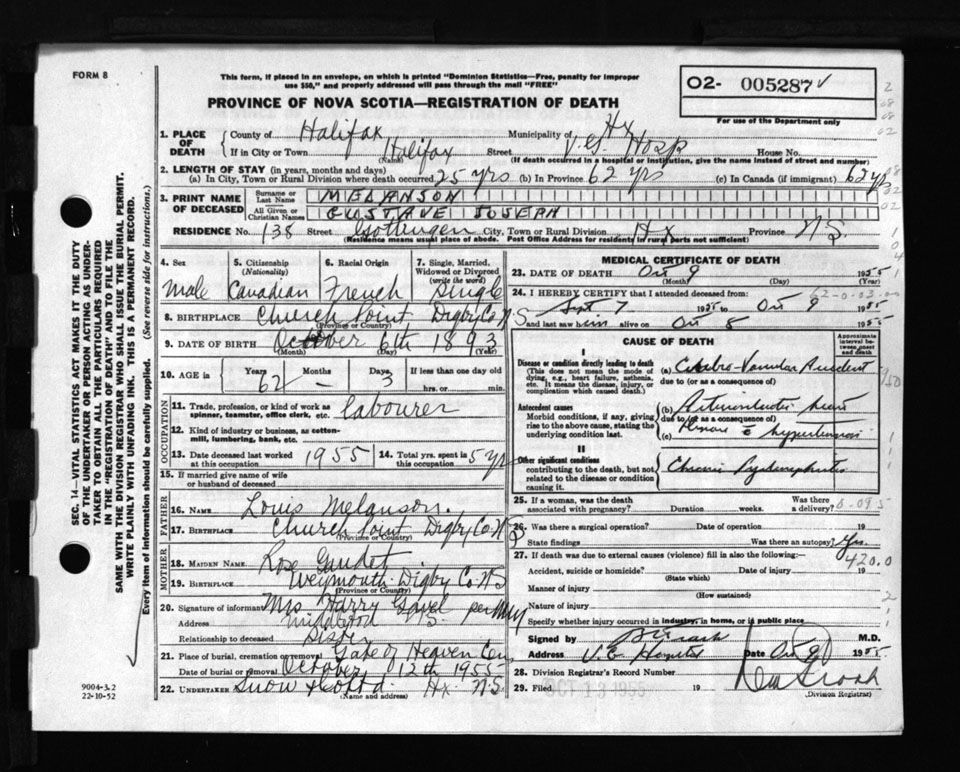 FORM 8
This form, if placed in an envelope, on which is printed "Dominion Statistics—Free, penalty for improper
use $50," and properly addressed will pass through the mail "FREE"
PROVINCE OF NOVA SCOTIA—REGISTRATION OF DEATH
O2- 005287
For use of the Department only
1. PLACE OF DEATH
County of Halifax Municipality of Hx
If in City or Town Halifax Street V.G. Hosp House No.
(Name) (If death occurred in a hospital or institution, give the name instead of street and number)
2. LENGTH OF STAY (in years, months and days)
(a) In City, Town or Rural Division where death occurred 25 yrs (b) In Province 62 yrs (c) In Canada (if immigrant) 62 yrs
3. PRINT NAME OF DECEASED
Surname or Last Name MELANSON
All Given or Christian Names GUSTAVE JOSEPH
RESIDENCE No. 138 Street Gottingen City, Town or Rural Division Hx Province N.S.
(Residence means usual place of abode. Post Office Address for residents in rural parts not sufficient)
4. Sex Male
5. Citizenship (Nationality) Canadian
6. Racial Origin French
7. Single, Married, Widowed or Divorced (write the word) Single
8. BIRTHPLACE Church Point Digby Co. N S
(Province or Country)
9. DATE OF BIRTH October 6th 1893
(Month) (Day) (Year)
10. AGE in Years 62 Months — Days 3 If less than one day old
hrs. or min.
OCCUPATION
11. Trade, profession, or kind of work as spinner, teamster, office clerk, etc. labourer
12. Kind of industry or business, as cotton-mill, lumbering, bank, etc.
13. Date deceased last worked at this occupation 1955
14. Total yrs. spent in this occupation 5 yrs
15. If married give name of wife or husband of deceased
FATHER
16. Name Louis Melanson.
17. Birthplace Church Point Digby Co. N S
(Province or Country)
MOTHER
18. MAIDEN NAME Rose Gaudet
19. BIRTHPLACE Weymouth Digby Co. N S
(Province or Country)
20. Signature of informant Mrs Harry Gavel per
Address N.S.
Relationship to deceased Sister
21. Place of burial, cremation or removal Gate of Heaven Cem
Date of burial or removal October 12th 1955
22. UNDERTAKER Snow & Co Ltd. Hx. N.S.
(Name and address)
MEDICAL CERTIFICATE OF DEATH
23. DATE OF DEATH Oct 9 1955
(Month) (Day)
24. I HEREBY CERTIFY that I attended deceased from
Sept 7 1955 to Oct 9 1955
and last saw him alive on Oct 8 1955
CAUSE OF DEATH
Approximate interval between onset and death
I
Disease or condition directly leading to death
(This does not mean the mode of dying, e.g., heart failure, asthenia, etc. It means the disease, injury, or complication which caused death.)
(a) Cerebro-Vascular Accident
due to (or as a consequence of)
Antecedent causes
Morbid conditions, if any, giving rise to the above cause, stating the underlying condition last.
(b) Arteriosclerotic heart
due to (or as a consequence of)
(c) disease c̄ hypertension
II
Other significant conditions
contributing to the death, but not related to the disease or condition causing it.
Chronic Pyelonephritis
25. If a woman, was the death associated with pregnancy? Duration weeks. Was there a delivery?
26. Was there a surgical operation? Date of operation 19
State findings Was there an autopsy? Yes.
27. If death was due to external causes (violence) fill in also the following:-
420.0
Accident, suicide or homicide? Date of injury 19
(State which)
Manner of injury
(How sustained)
Nature of injury
Specify whether injury occurred in industry, in home, or in public place
Signed by M.D.
Address V.G. Hospital Date Oct 9 1955
28. Division Registrar's Record Number
29. Filed OCT 13 1955 19
(Division Registrar)
SEC. 14—VITAL STATISTICS ACT MAKES IT THE DUTY
OF THE UNDERTAKER OR PERSON ACTING AS UNDER-
TAKER TO OBTAIN ALL THE PARTICULARS REQUIRED
IN THE "REGISTRATION OF DEATH" AND TO FILE THE
SAME WITH THE DIVISION REGISTRAR WHO SHALL ISSUE THE BURIAL PERMIT.
WRITE PLAINLY WITH UNFADING INK. THIS IS A PERMANENT RECORD.
Every item of information should be carefully supplied. (See reverse side for instructions.)
9004-3.2
22-10-52